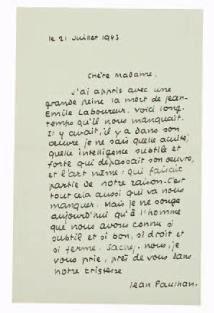 le 21 Juillet 1943
Chère Madame,
J'ai appris avec une
grande peine la mort de Jean-
Emile Laboureur. Voici long-
temps qu'il nous manquait.
Il y avait, il y a dans son
œuvre je ne sais quelle acuité,
quelle intelligence subtile et
forte qui dépassait son œuvre,
et l'art même : qui faisait
partie de notre raison. C'est
tout cela aussi qui va nous
manquer. Mais je ne songe
aujourd'hui qu'à l'homme
que nous avons connu si
subtil et si bon, si droit et
si ferme. Sachez-nous, je
vous prie, près de vous dans
notre tristesse
Jean Paulhan.